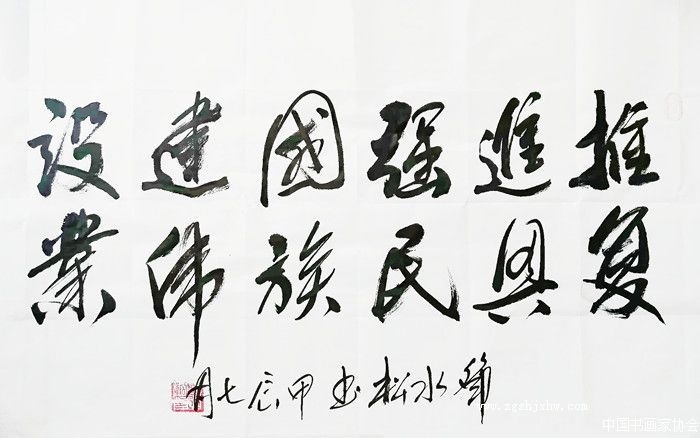 推進强國建设
复興民族伟業
水松书甲辰七月
www.zgshjxhw.com
中国书画家协会